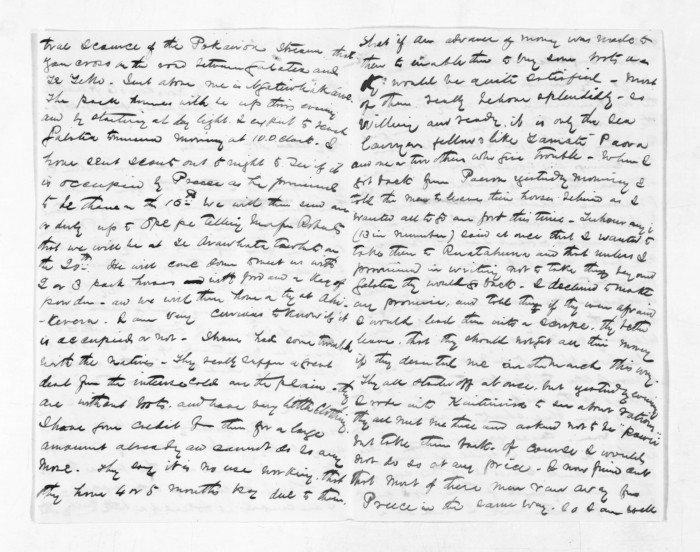 tral source of the Pokairoa Stream that
you cross on the road between Galatea and
Te Teko. Just above me is
The pack horses will be up this evening
and by starting at day light I expect to reach
Galatea tomorrow morning at 10.0 clock. I
have sent scouts out to night to see if it
is occupied by Preece as he promised
to be there on the 16th We will then send an
orderly up to Opepe telling Major Roberts
that we will be at Te Arawhata tawhiti on
the 20th. He will come down to meet us with
2 or 3 pack horses with food and a keg of
powder - and we will then have a try at Ahi-
-kereru. I am very curious to know if it
is occupied or not - I have had some trouble
with the natives - They really suffer a great
deal from the intense cold on the plain - they
are without boots, and have very little clothing
I have gone credit for them for a large
amount already and cannot do so any
more. They say it is no use working. that
they have 4 or 5 months pay due to them.
that if an advance of money was made to
them to enable them to buy some boots &c
they would be quite satisfied - Most
of them really behave splendidly - so
willing and ready, it is only the
fellows like Tamati Paora
and one or two others who give trouble - When I
got back from yesterday morning I
told the men to leave their horses behind as I
wanted all to go on foot this time -
(13 in number) said at once that I wanted to
take them to Ruatahuna and that unless I
promised in writing not to take them beyond
Galatea they would go back - I declined to make
any promise, and told them if they were afraid
I would lead them into a scrape, they better
leave. that they should not get all their money
if they deserted me on the march this way.
They all started off at once, but yesterday evening
I rode into Kaiteriria to see about rations
they all met me there and asked not to be
but take them back. of course I would
not do so at any price. I now find out
that most of these men ran away from
Preece in the same way. So I am well